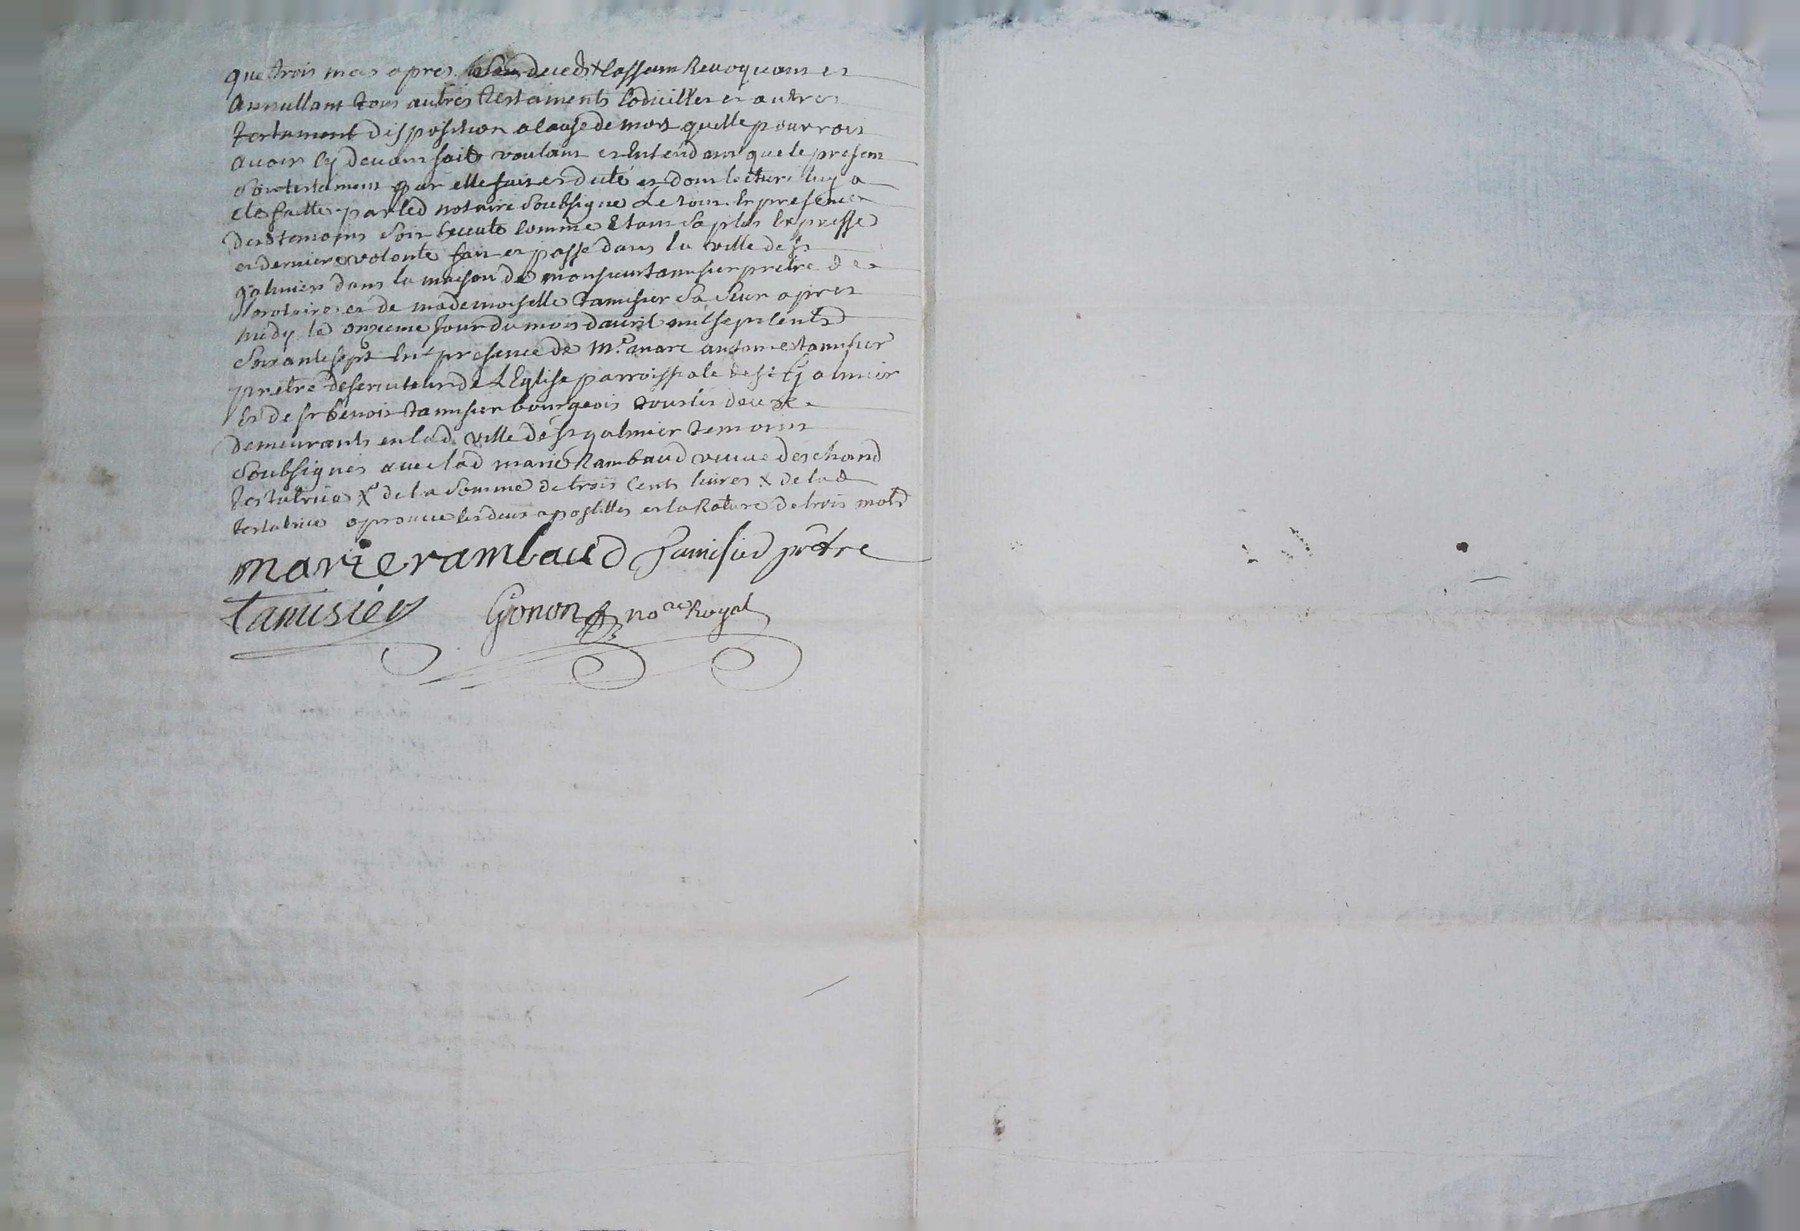 que trois mois apres son deceds Cassant Revoquant et
annullant tous autres testaments Codicilles et autres
testament disposition a Cause de mort quelle pourroit
avoir Cy devant faite voulant et Entendant que le present
son testament par elle fait et dicté et dont lecture luy a
eté faitte par led notaire soubsigné Le tout En presence
des temoins soit Execute Comme Etant sa plus Expresse
et derniere volonte fait et passé dans la ville de st
galmier dans la maison de monsieur tamisier pretre
et de mademoiselle tamisier sa seur apres
midy le onzieme jour du mois davril mil sept Cents
soixante sept En presence de mre marc antoine tamisier
pretre deserviteur de LEglise parroissiale de st Galmier
Et de sr benoit tamisier bourgeois tous les deux
demeurants en lad. ville de st galmier temoins
soubsignés avec lad marie Rambaud veuve deschand
testatrice X de la somme de trois Cents livres X de lad
testatrice aprouve les deux apostilles et la Rature de trois mots
marie rambaud tamisier prêtre
tamisier Gonon nore Royal